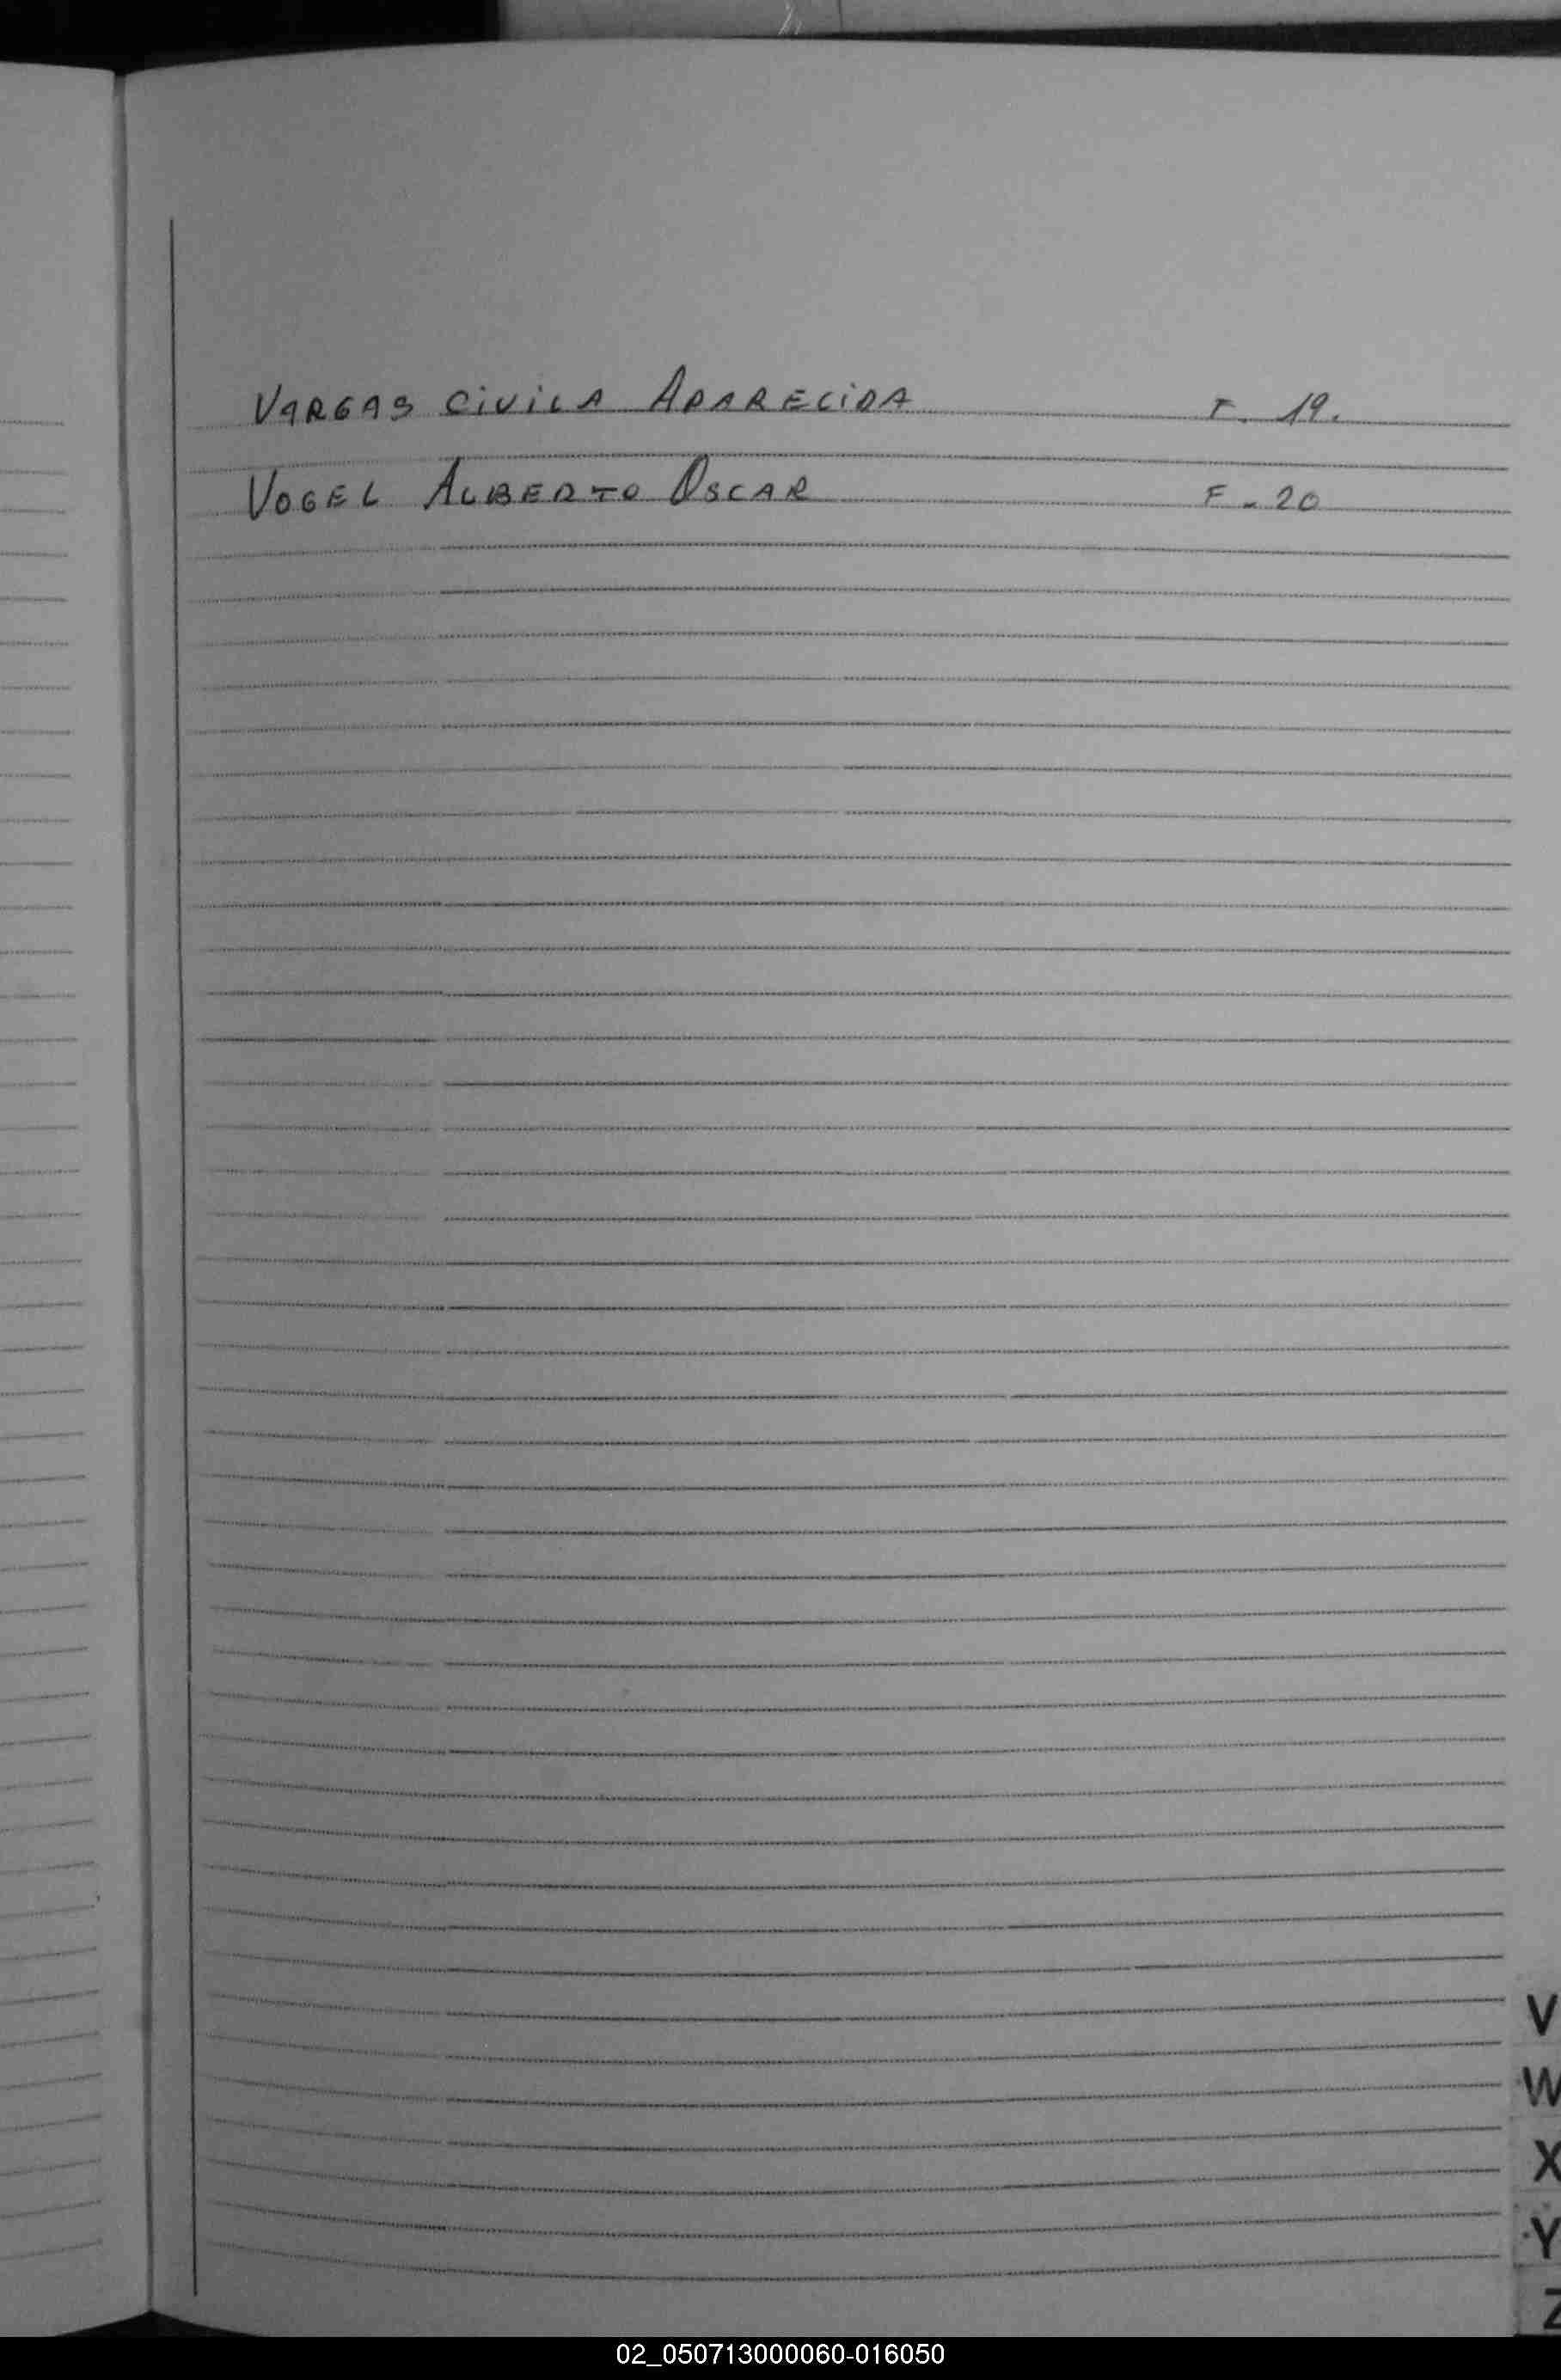 VARGAS CIVILA APARECIDA F. 19.
VOGEL ALBERTO OSCAR F - 20
V
W
X
Y
Z
02_050713000060-016050